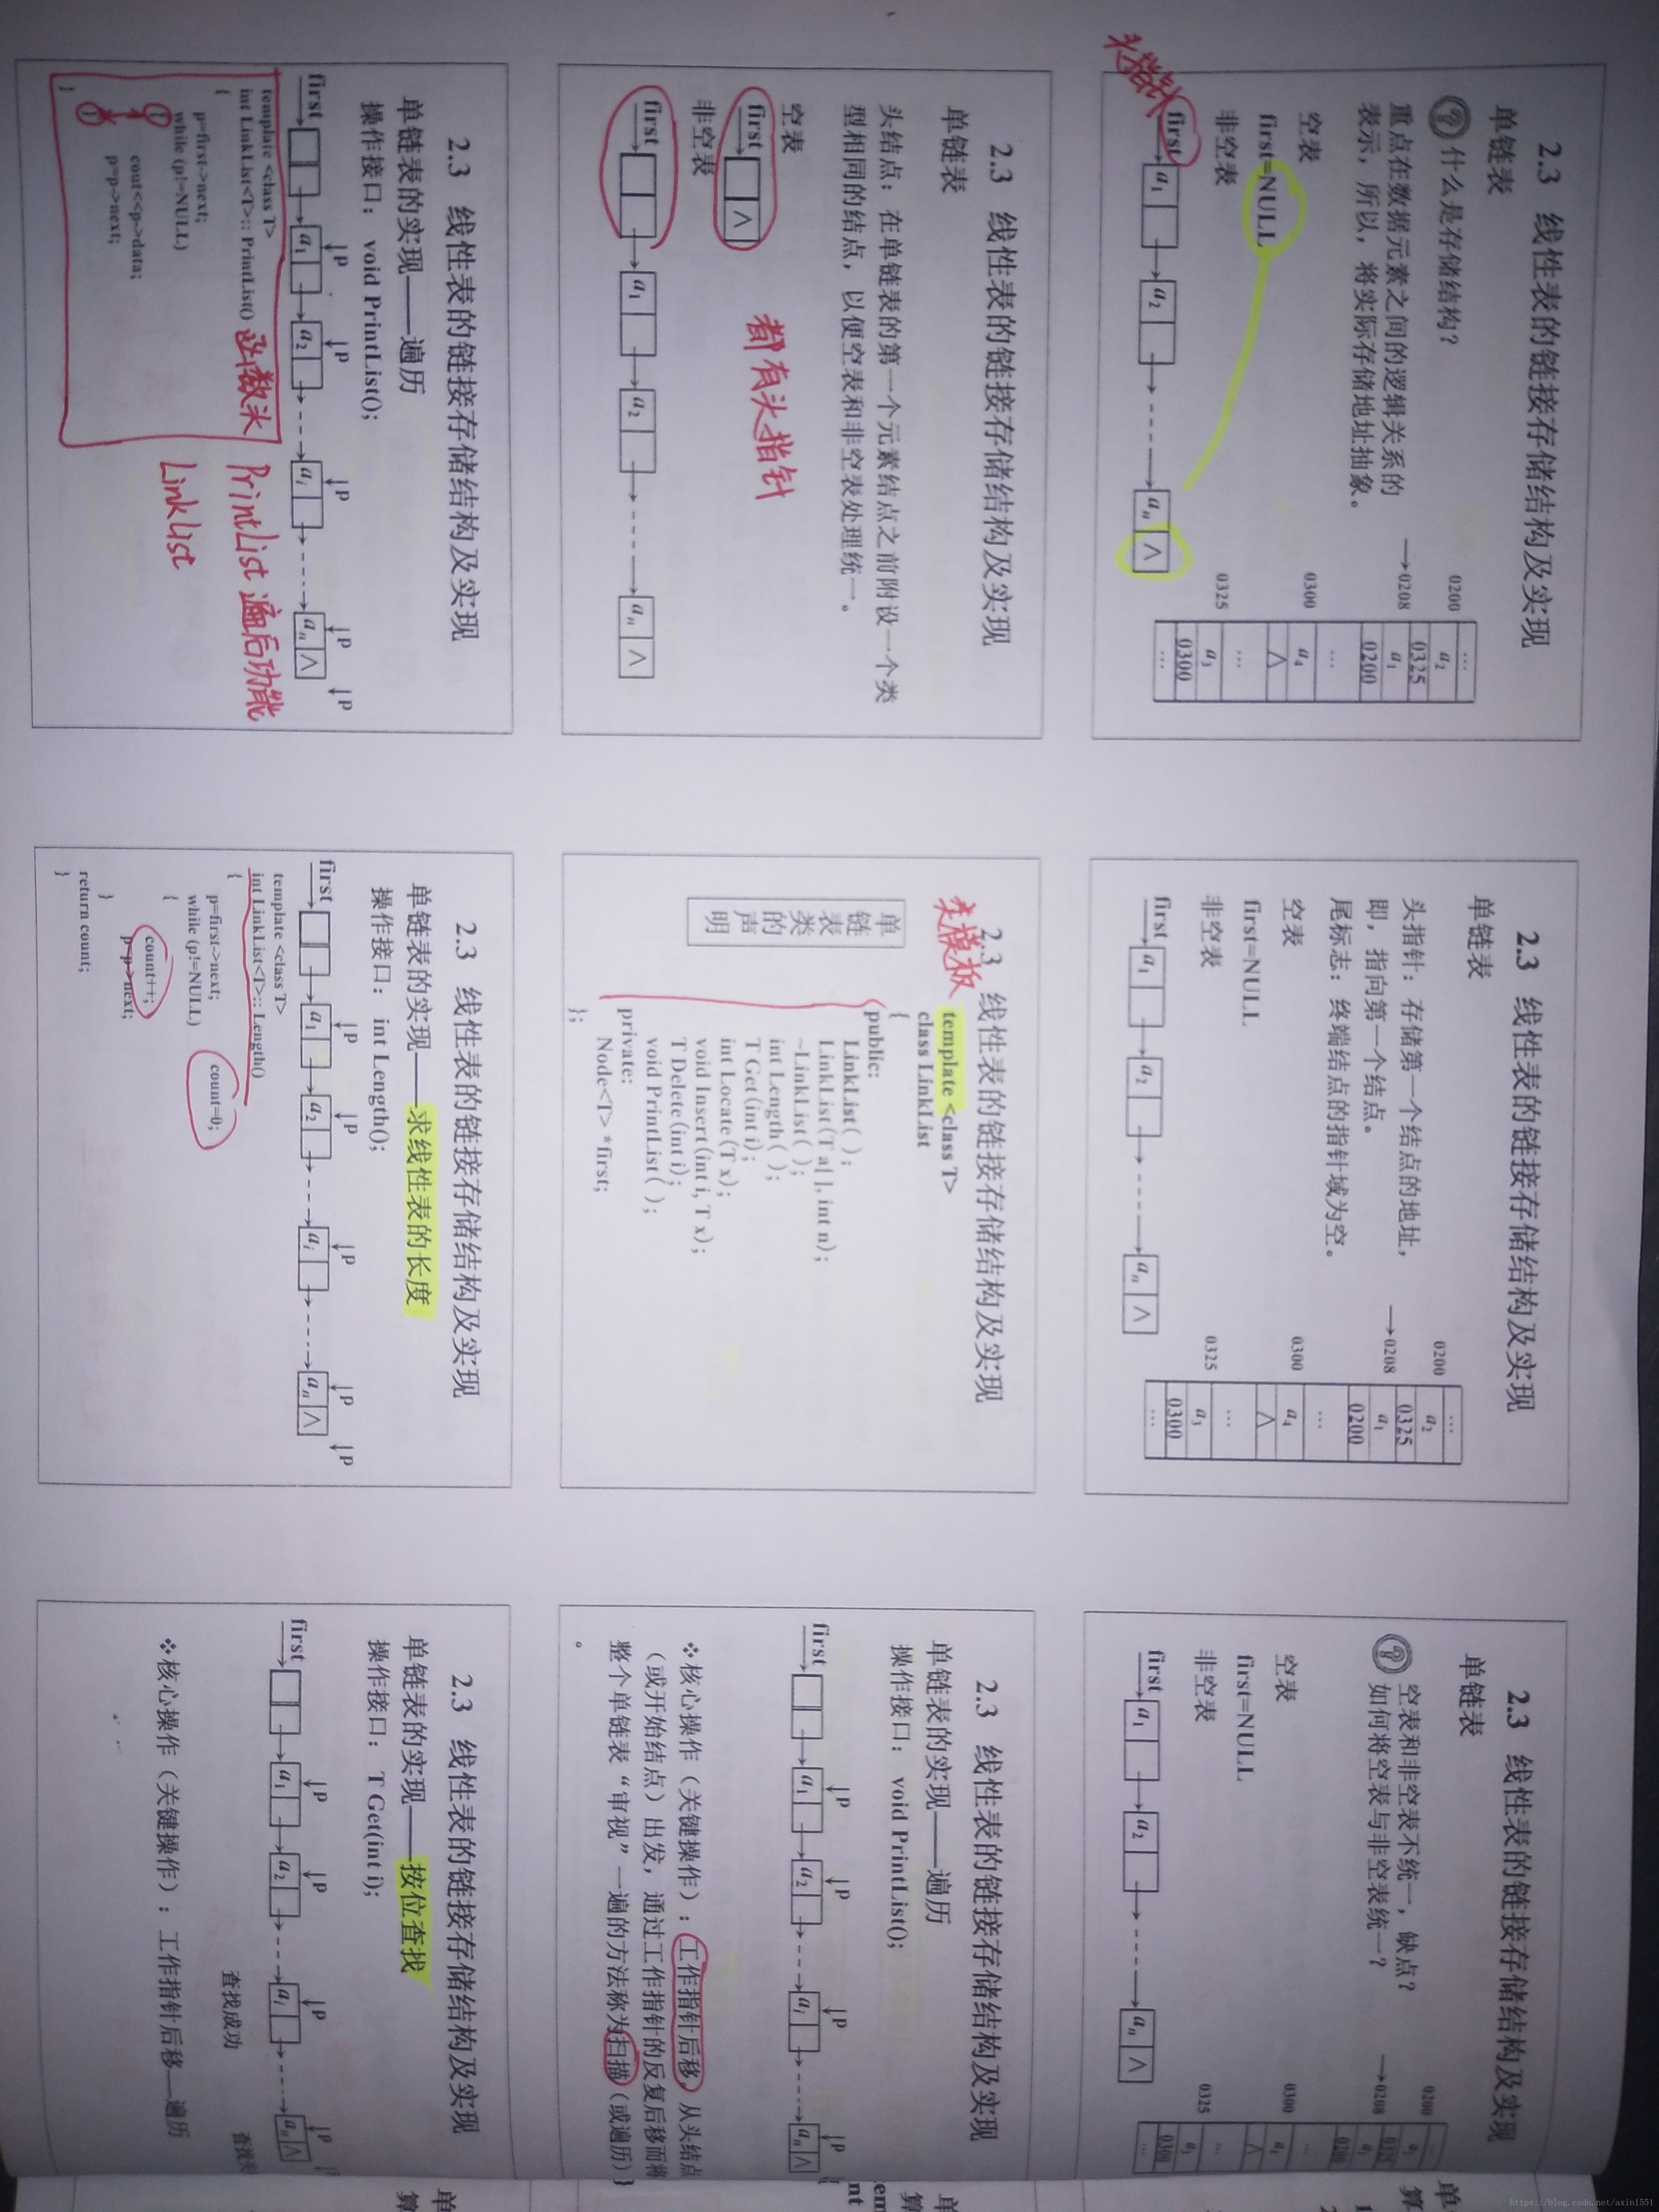 2.3 线性表的链接存储结构及实现
单链表
? 什么是存储结构?
重点在数据元素之间的逻辑关系的
表示,所以,将实际存储地址抽象。
空表
first=NULL
非空表
头指针
first a1 a2 an ∧
0200
→0208
0300
0325
…
a2
0325
a1
0200
…
a4
∧
…
a3
0300
…
2.3 线性表的链接存储结构及实现
单链表
头指针:存储第一个结点的地址,
即,指向第一个结点。
尾标志:终端结点的指针域为空。
空表
first=NULL
非空表
first a1 a2 an ∧
0200
→0208
0300
0325
…
a2
0325
a1
0200
…
a4
∧
…
a3
0300
…
2.3 线性表的链接存储结构及实现
单链表
? 空表和非空表不统一,缺点?
如何将空表与非空表统一?
空表
first=NULL
非空表
first a1 a2 an ∧
0200
→0208
0300
0325
2.3 线性表的链接存储结构及实现
单链表
头结点:在单链表的第一个元素结点之前附设一个类
型相同的结点,以便空表和非空表处理统一。
空表
first ∧
都有头指针
非空表
first a1 a2 an ∧
2.3 线性表的链接存储结构及实现
类模板
单链表类的声明
template <class T>
class LinkList
{
public:
LinkList( );
LinkList(T a[ ], int n);
~LinkList( );
int Length( );
T Get(int i);
int Locate(T x);
void Insert(int i, T x);
T Delete(int i);
void PrintList( );
private:
Node<T> *first;
};
2.3 线性表的链接存储结构及实现
单链表的实现——遍历
操作接口: void PrintList();
first a1 p a2 p ai p an ∧ p
❖核心操作(关键操作):工作指针后移。从头结点
(或开始结点)出发,通过工作指针的反复后移而将
整个单链表“审视”一遍的方法称为扫描(或遍历)
。
2.3 线性表的链接存储结构及实现
单链表的实现——遍历
操作接口: void PrintList();
first a1 p a2 p ai p an ∧ p p
template <class T>
int LinkList<T>:: PrintList() 函数头
{
p=first->next;
while (p!=NULL)
cout<<p->data;
p=p->next;
}
PrintList 遍后功能
Linklist
2.3 线性表的链接存储结构及实现
单链表的实现——求线性表的长度
操作接口: int Length();
first a1 p a2 p ai p an ∧ p p
template <class T>
int LinkList<T>:: Length()
{
p=first->next; count=0;
while (p!=NULL)
{
count++;
p=p->next;
}
return count;
}
2.3 线性表的链接存储结构及实现
单链表的实现——按位查找
操作接口: T Get(int i);
first a1 p a2 p ai p an ∧ p
查找成功
❖核心操作(关键操作):工作指针后移—遍历
https://blog.csdn.net/axin1551